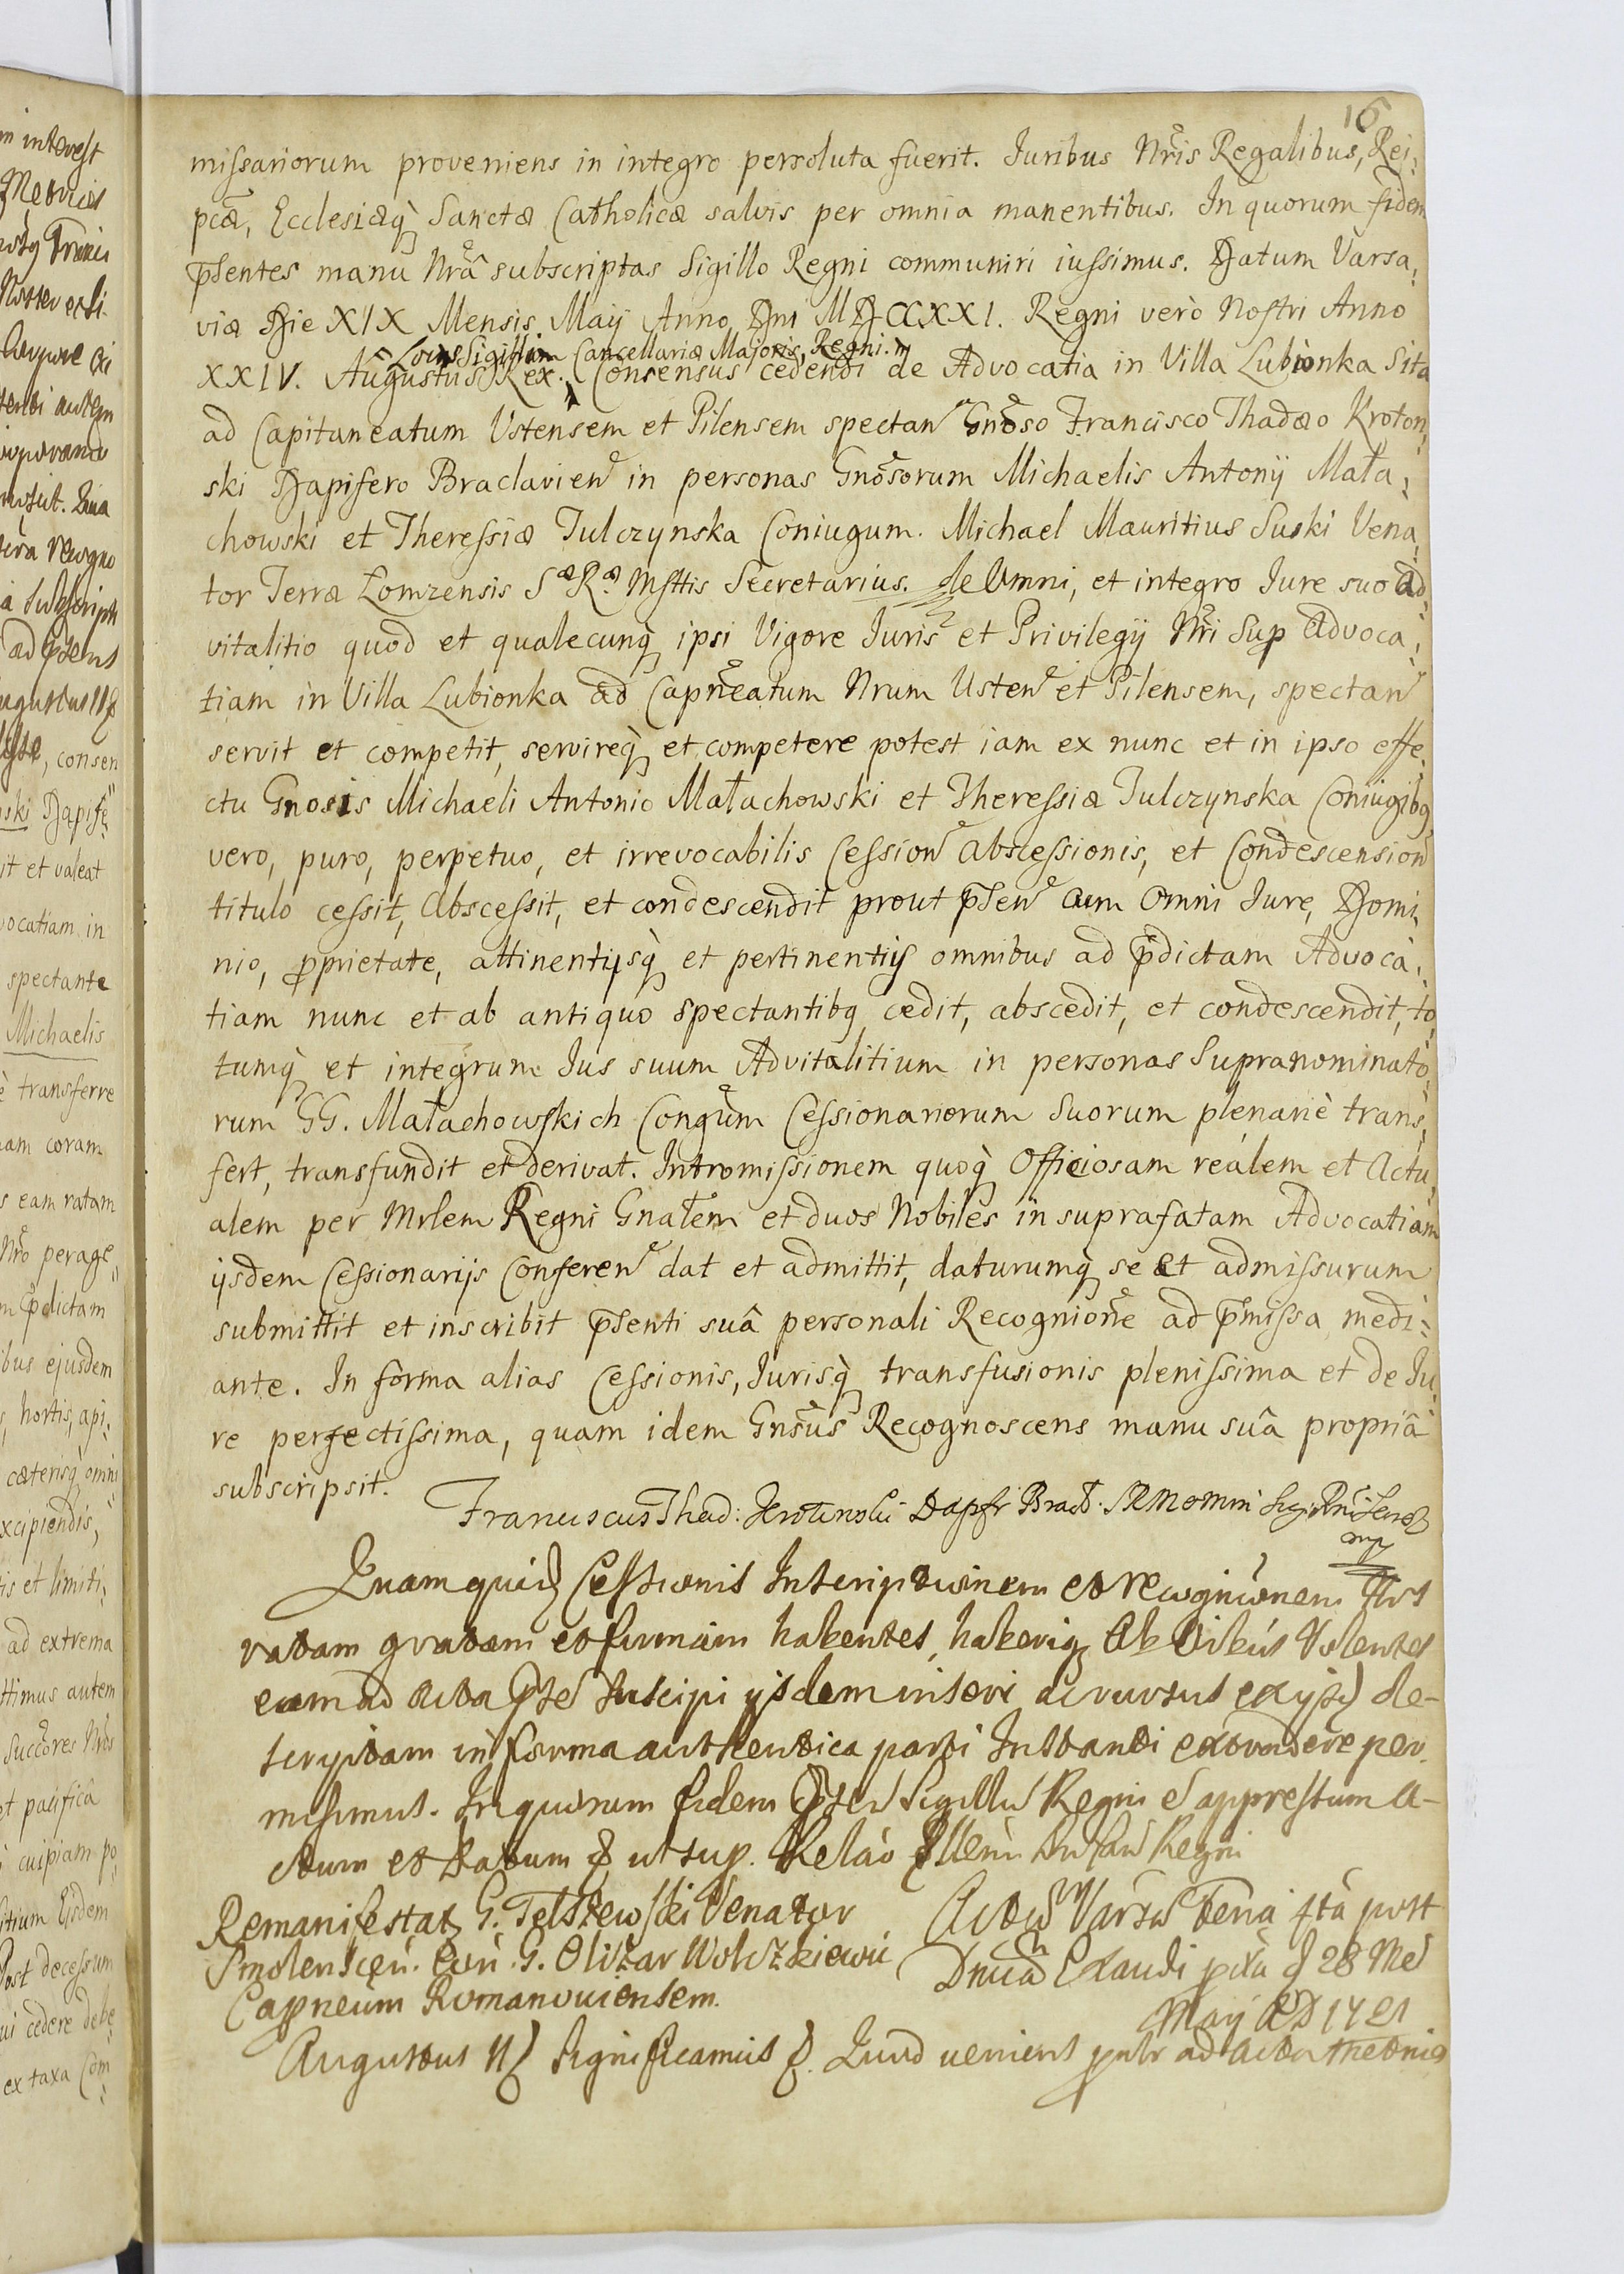 16
missariorum proveniens in integro persoluta fuerit. Iuribus Nr̃is Regalibus, Rei-
pcæ, Ecclesiæq̀ Sanctæ Catholicæ salvis per omnia manentibus. In quorum fidem
p̃sentes manu Nrâ subscriptas Sigillo Regni communiri iussimus. Datum Varsa-
viæ Die XIX Mensis Maij Anno Dni MDCCXXI. Regni verò Nostri Anno
Locus Sigilli Cancellariæ Majoris Regni.
XXIV. Augustus Rex. Consensus cedendi de Advocatia in Villa Lubionka Sita
ad Capitaneatum Ustensem et Pilensem spectan Gnoso Francisco Thadæo Kroton-
ski Dapifero Braclavien in personas Gnosorum Michaelis Antonij Mała-
chowski et Theressiæ Tulczynska Coniugum. Michael Mauritius Suski Vena-
tor Terræ Łomzensis Sæ Ræ Mttis Secretarius. de Omni, et integro Iure suo ad-
vitalitio quod et qualecunq̀ ipsi Vigore Iuris et Privilegij Nr̃i Sup Advoca-
tiam in Villa Lubionka ad Capneatum Nrum Usten et Pilensem, spectan
servit et competit, servireq̀ et competere potest iam ex nunc et in ipso effe-
ctu Gnosis Michaeli Antonio Małachowski et Theressiæ Tulczynska Coniugibq
vero, puro, perpetuo, et irrevocabilis Cession Abscessionis, et Condescension
titulo cessit, Abscessit, et condescendit prout p̃sen cum Omni Iure, Domi-
nio, proprietate, attinentijsq̀ et pertinentijs omnibus ad p̃dictam Advoca-
tiam nunc et ab antiquo spectantibq cedit, abscedit, et condescendit, to-
tumq̀ et integrum Ius suum Advitalitium in personas Supranominato-
rum GG. Małachowskich Congum Cessionariorum Suorum plenariè trans-
fert, transfundit et derivat. Intromissionem quoq̀ Officiosam reálem et Actu-
alem per Mrlem Regni Gnałem et duos Nobiles in suprafatam Advocatiam
ijsdem Cessionarijs Conferen dat et admittit, daturumq̀ se et admissurum
submittit et inscribit p̃senti suâ personali Recognione ad p̃missa medi-
ante. In forma alias Cessionis, Iurisq̀ transfusionis plenissima et de Iu-
re perfectissima, quam idem Gnsus Recognoscens manu suâ propriâ
subscripsit.
Franciscus Thad: Krotunski Dapifr Bracł.
mp
Quamquid Cessionis Inscriptionem et recogniõnem Nos
ratam gratam et firmam habentes, haberiq Ab Oibus Volentes
eam ad Acta p̃te Suscipi ijsdem inseri ac rursus ex ijsd de-
scriptam in forma authentica parti Instanti extradere per-
misimus. In quorum fidem p̃sen Sigillu Regni e appressum A-
ctum et Datum & ut sup. Relaõ Regni
Remanifestat G. Telszewski Venator
Smolenscen. Con. G. Olizar Wolczkiewic
Capneum Romanoviensem.
Actu Varsa Feria 4ta post
Dnica Exaudi pxa d 28 Me
Maij AD 1721
Augustus II Significamus &. Quod veniens psnlr ad Acta Metrices